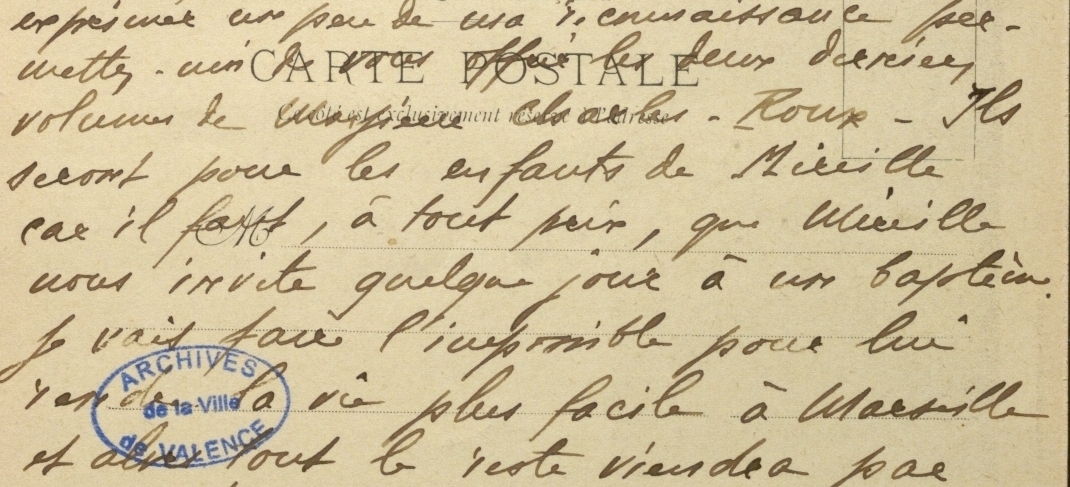 exprimer un peu de ma reconnaissance per-
mettez-moi de vous offrir les deux derniers
CARTE POSTALE
volumes de Monsieur Charles-Roux - Ils
Ce côté est exclusivement réservé à l'adresse
seront pour les enfants de Mireille
car il faut, à tout prix, que Mireille
M
nous invite quelque jour à un baptême.
Je vais faire l'impossible pour lui
rendre la vie plus facile à Marseille
ARCHIVES
de la Ville
de VALENCE
et alors tout le reste viendra par